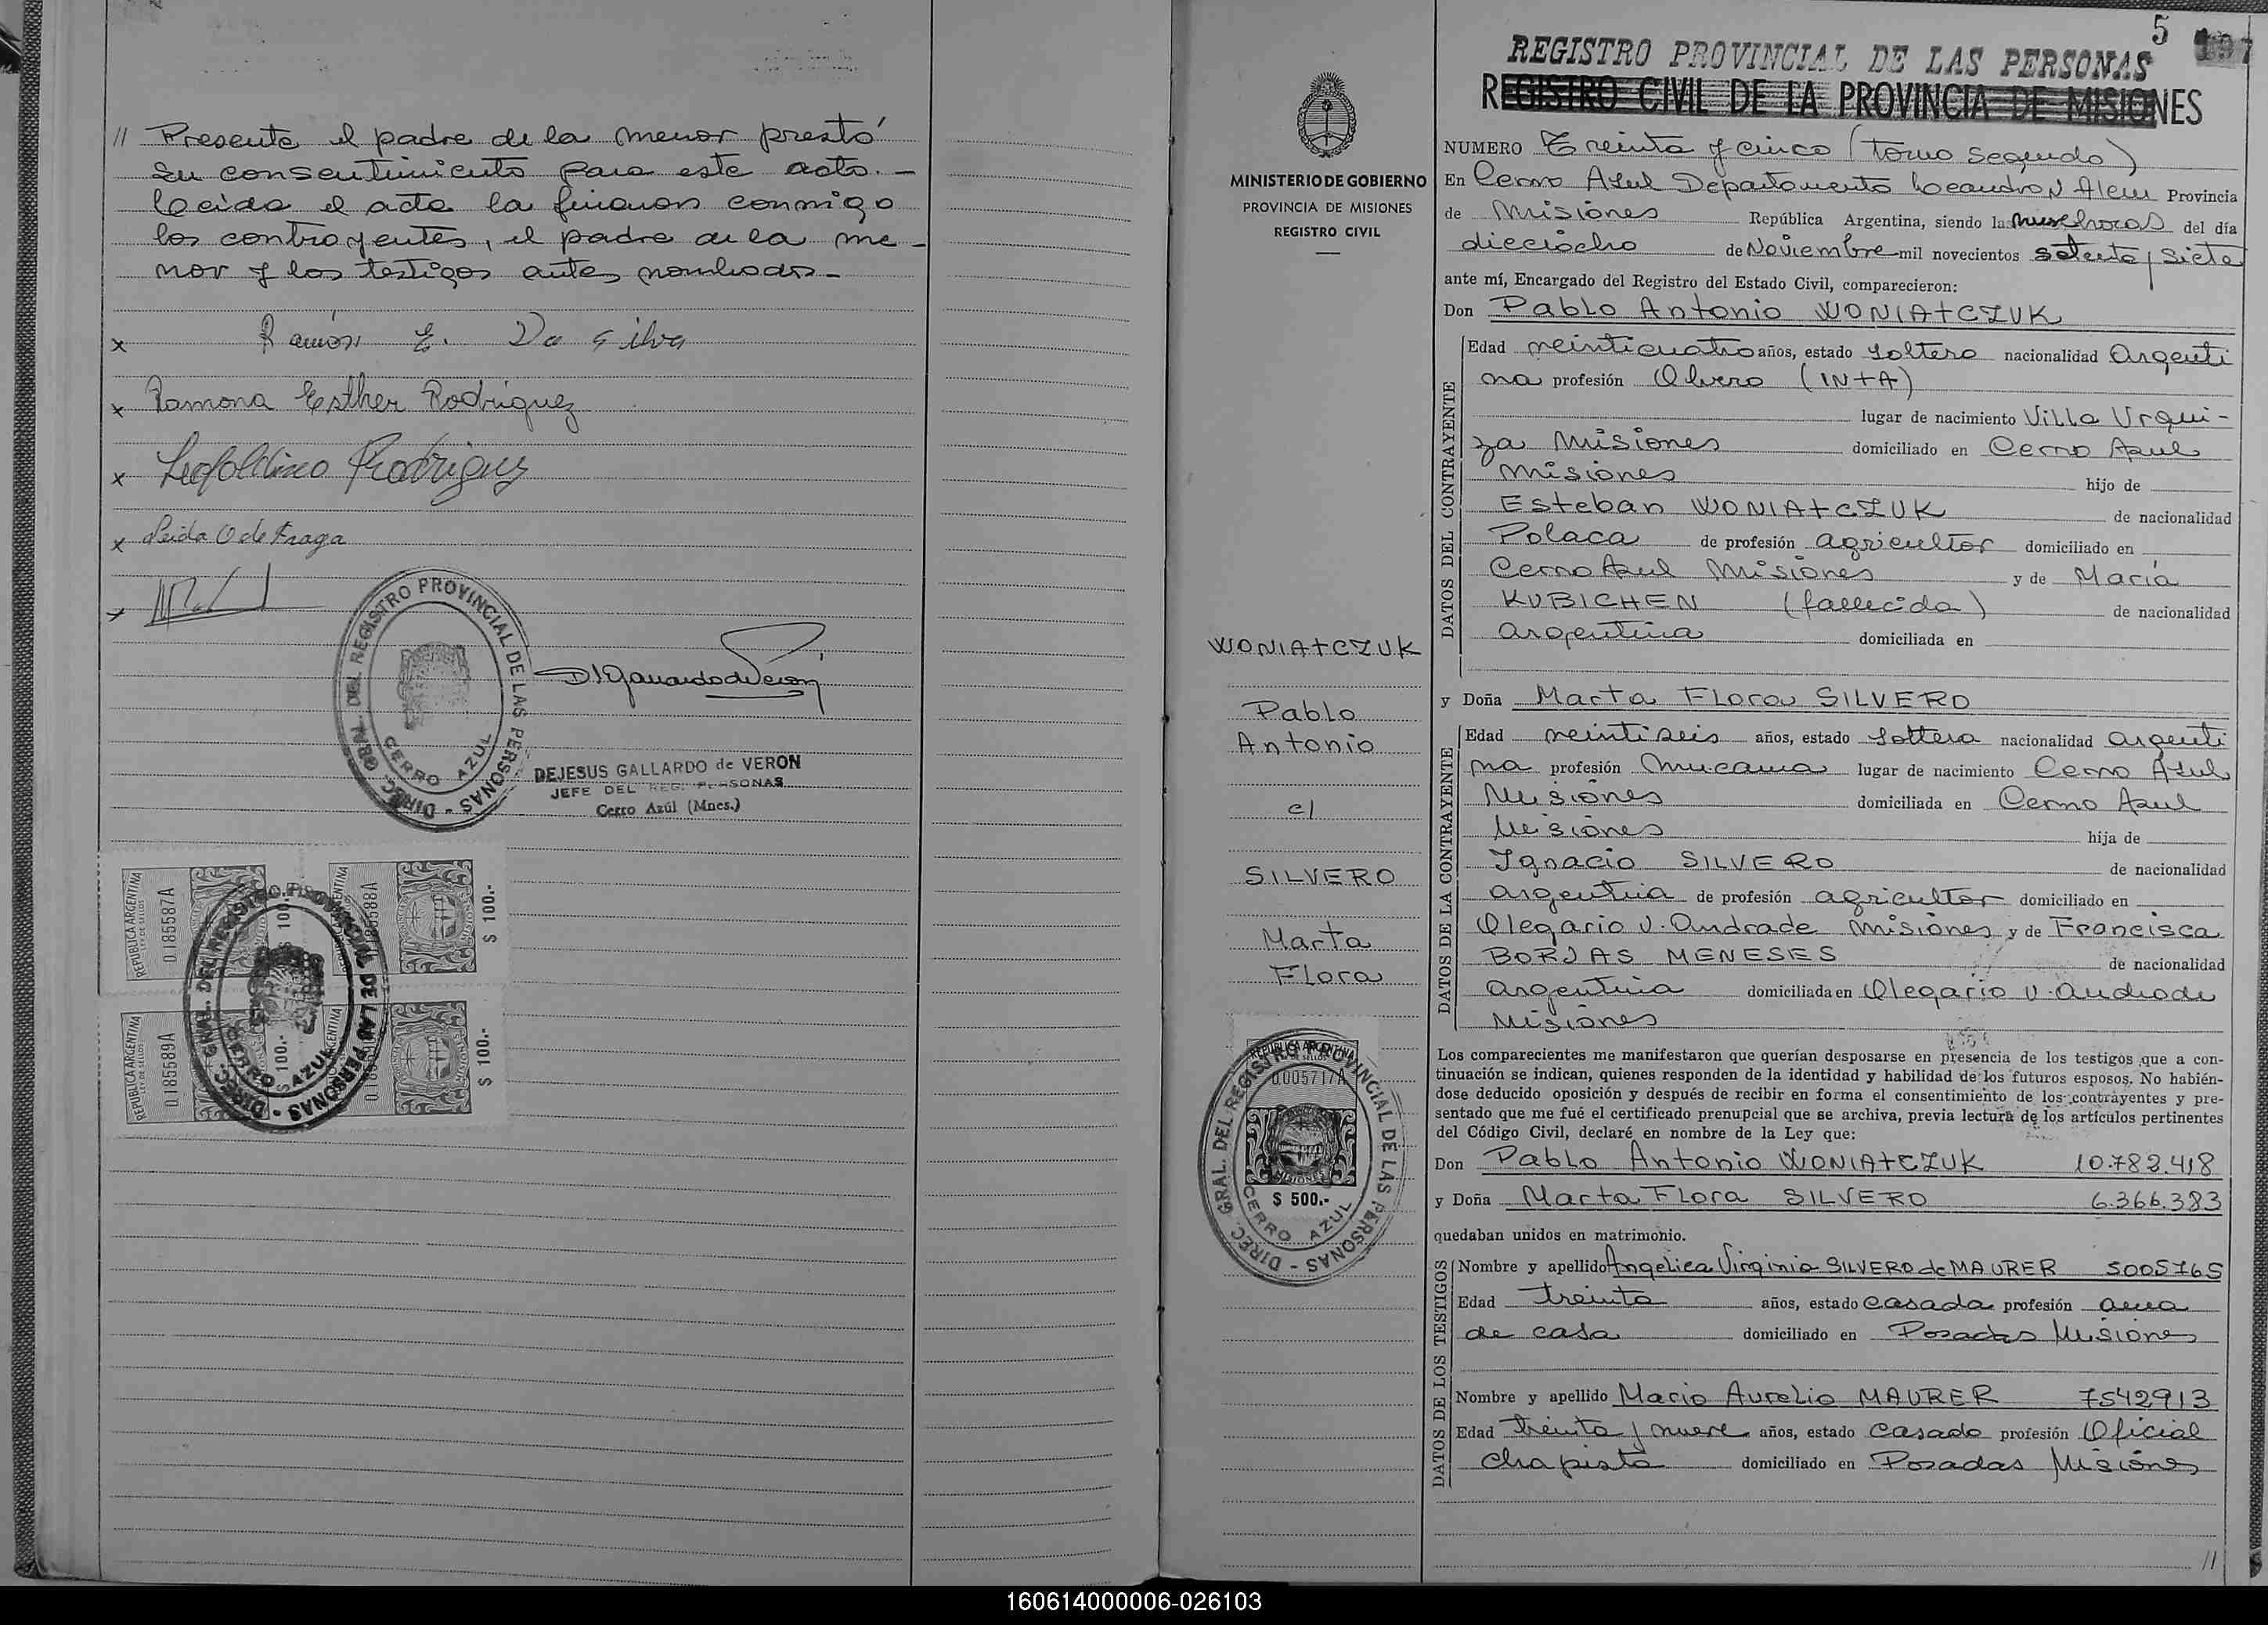 // Presente el padre de la menor prestó
su consentimiento para este acto. -
Leida el acta la firman conmigo
los contrayentes, el padre de la me -
nor y los testigos antes nombrados -
x Ramón E. Da Silva
x Ramona Esther Rodriguez
x Leopoldino Rodriguez
x Leida O de Fraga
x
DIREC. GRAL. DEL REGISTRO PROVINCIAL DE LAS PERSONAS -
CERRO AZUL
DGallardo de Veron
DEJESUS GALLARDO de VERON
JEFE DEL REG. PERSONAS
Cerro Azúl (Mnes.)
REPUBLICA ARGENTINA
LEY DE SELLOS
0.185587A
$ 100.-
185588A
$ 100.-
REPUBLICA ARGENTINA
LEY DE SELLOS
0.185589A
$ 100.-
$ 100.-
DIREC. GRAL. DEL REGISTRO PROVINCIAL DE LAS PERSONAS -
CERRO AZUL
MINISTERIO DE GOBIERNO
PROVINCIA DE MISIONES
REGISTRO CIVIL
WONIATCZUK
Pablo
Antonio
c/
SILVERO
Marta
Flora
REPUBLICA ARGENTINA
LEY DE SELLOS
0.005717A
MISIONES
$ 500.-
DIREC. GRAL. DEL REGISTRO PROVINCIAL DE LAS PERSONAS -
CERRO AZUL
5
197
REGISTRO PROVINCIAL DE LAS PERSONAS
REGISTRO CIVIL DE LA PROVINCIA DE MISIONES
NUMERO Treinta y cinco (tomo segundo)
En Cerro Azul Departamento Leandro N Alem Provincia
de Misiones República Argentina, siendo las nueve horas del día
dieciocho de Noviembre mil novecientos setenta y siete
ante mí, Encargado del Registro del Estado Civil, comparecieron:
Don Pablo Antonio WONIATCZUK
DATOS DEL CONTRAYENTE
Edad veinticuatro años, estado soltero nacionalidad Argenti
na profesión Obrero (INTA)
lugar de nacimiento Villa Urqui-
za Misiones domiciliado en Cerro Azul
Misiones hijo de
Esteban WONIATCZUK de nacionalidad
Polaca de profesión agricultor domiciliado en
Cerro Azul Misiones y de María
KUBICHEN (fallecida) de nacionalidad
argentina domiciliada en
y Doña Marta Flora SILVERO
DATOS DE LA CONTRAYENTE
Edad veintiseis años, estado soltera nacionalidad argenti
na profesión mucama lugar de nacimiento Cerro Azul
Misiones domiciliada en Cerro Azul
Misiones hija de
Ignacio SILVERO de nacionalidad
argentina de profesión agricultor domiciliado en
Olegario V. Andrade Misiones y de Francisca
BORJAS MENESES de nacionalidad
argentina domiciliada en Olegario V. Andrade
Misiones
Los comparecientes me manifestaron que querían desposarse en presencia de los testigos que a con-
tinuación se indican, quienes responden de la identidad y habilidad de los futuros esposos. No habién-
dose deducido oposición y después de recibir en forma el consentimiento de los contrayentes y pre-
sentado que me fué el certificado prenupcial que se archiva, previa lectura de los artículos pertinentes
del Código Civil, declaré en nombre de la Ley que:
Don Pablo Antonio WONIATCZUK 10.782.418
y Doña Marta Flora SILVERO 6.366.383
quedaban unidos en matrimonio.
DATOS DE LOS TESTIGOS
Nombre y apellido Angelica Virginia SILVERO de MAURER 5005765
Edad treinta años, estado casada profesión ama
de casa domiciliado en Posadas Misiones
Nombre y apellido Mario Aurelio MAURER 7542913
Edad treinta y nueve años, estado casado profesión Oficial
chapista domiciliado en Posadas Misiones
//
160614000006-026103